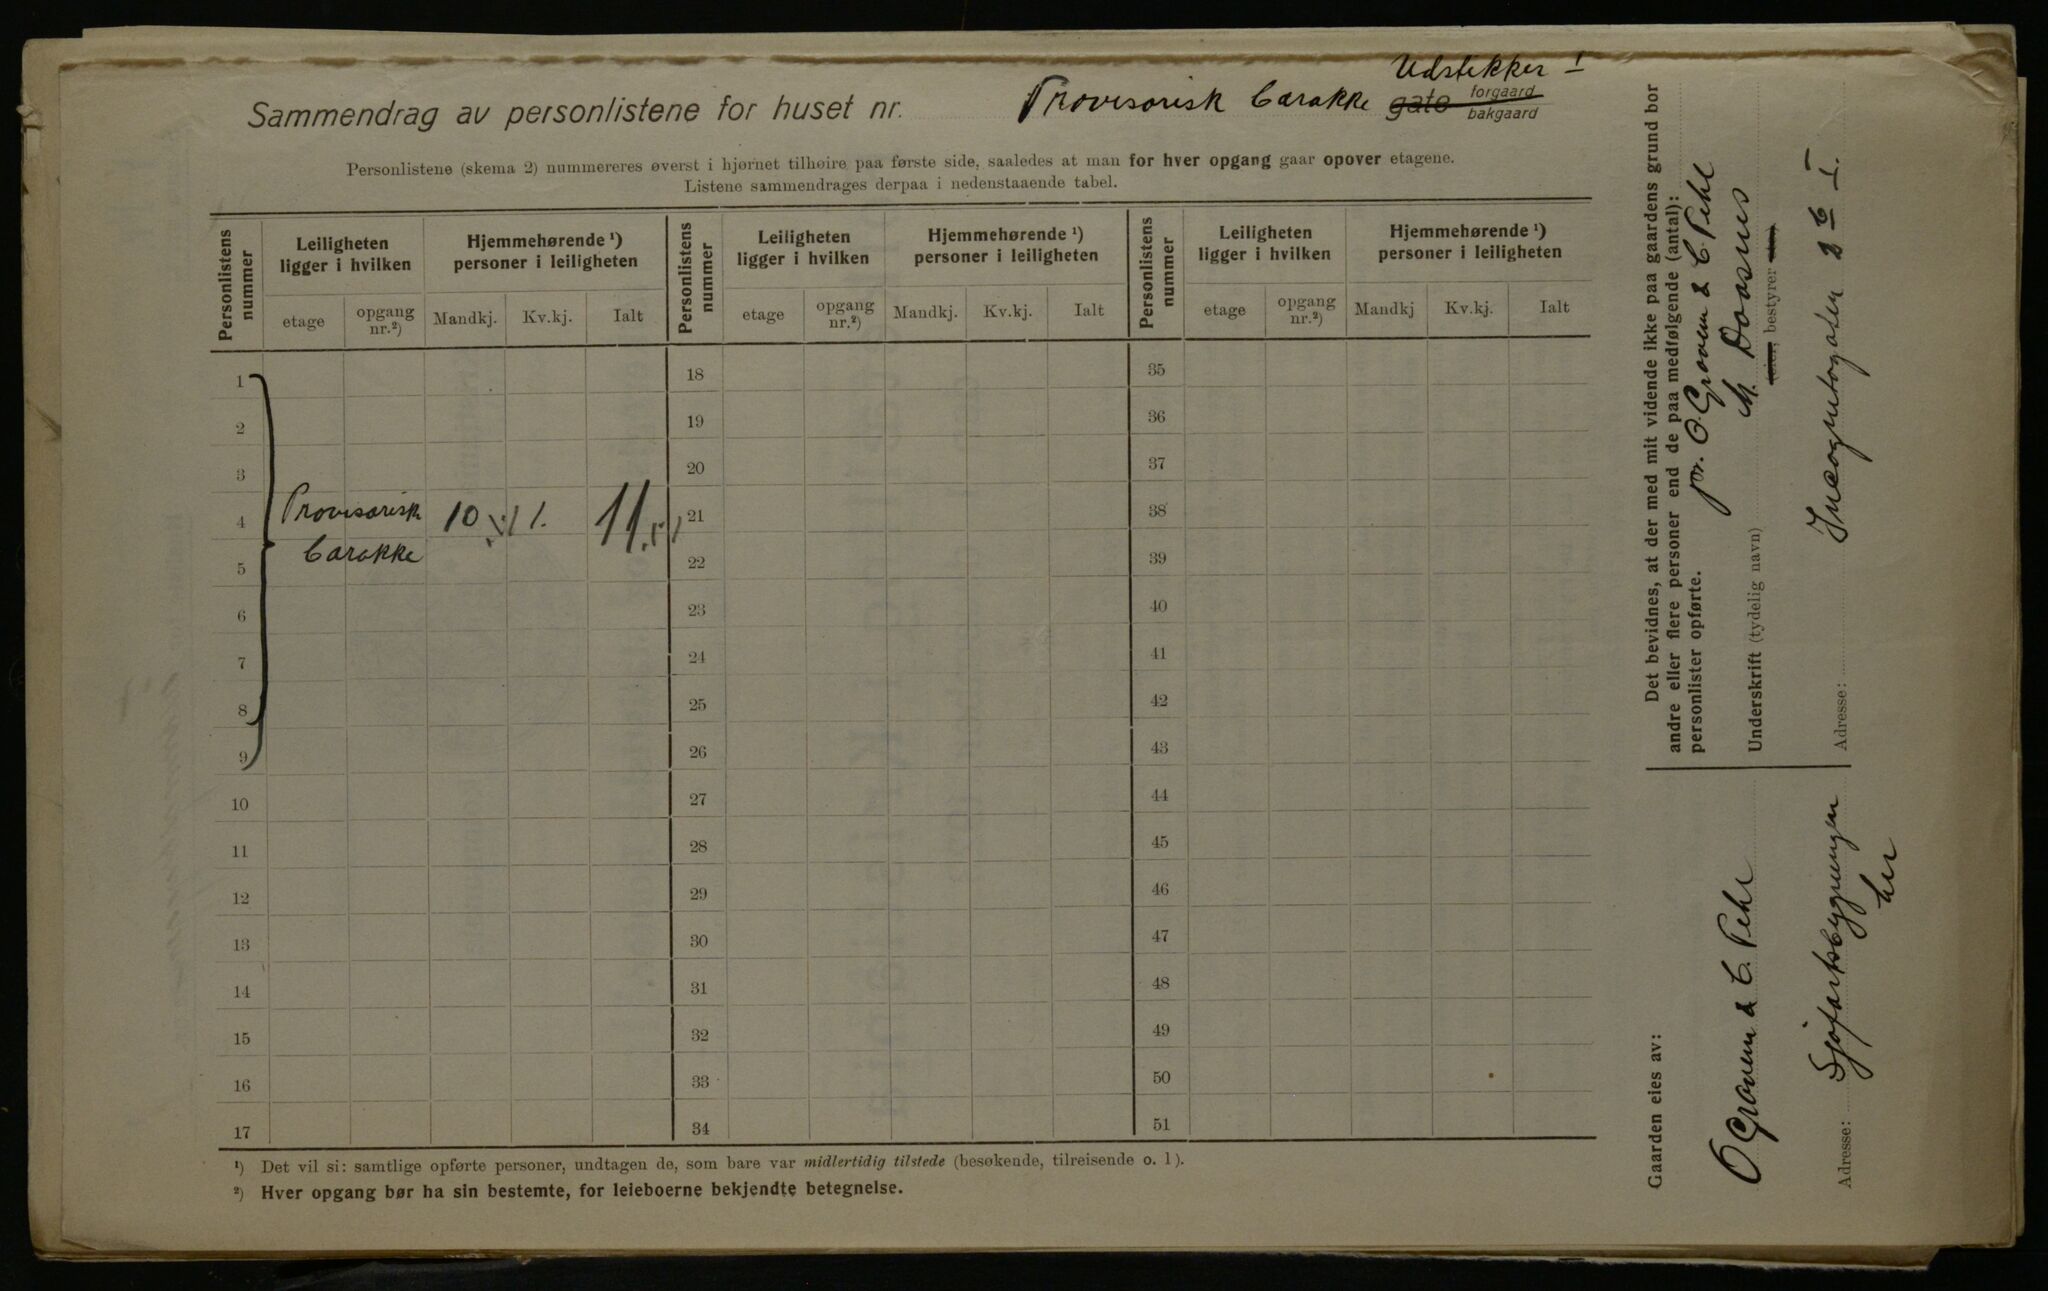 Sammendrag av personlistene for huset nr. Provisorisk Barakke Udstikker I
gate forgaard bakgaard
Personlistene (skema 2) nummereres øverst i hjørnet tilhøire paa første side, saaledes at man for hver opgang gaar opover etagene.
Listene sammendrages derpaa i nedenstaaende tabel.
Personlistens nummer
Leiligheten ligger i hvilken
Hjemmehørende ¹) personer i leiligheten
Personlistens nummer
Leiligheten ligger i hvilken
Hjemmehørende ¹) personer i leiligheten
Personlistens nummer
Leiligheten ligger i hvilken
Hjemmehørende ¹) personer i leiligheten
etage opgang nr.²) Mandkj. Kv.kj. Ialt etage opgang nr.²) Mandkj. Kv.kj. Ialt etage opgang nr.²) Mandkj Kv.kj. Ialt
1 18 35
2 19 36
3 20 37
4 Provisorisk 10 1. 11 21 38
5 Barakke 22 39
6 23 40
7 24 41
8 25 42
9 26 43
10 27 44
11 28 45
12 29 46
13 30 47
14 31 48
15 32 49
16 33 50
17 34 51
¹) Det vil si: samtlige opførte personer, undtagen de, som bare var midlertidig tilstede (besøkende, tilreisende o. l).
²) Hver opgang bør ha sin bestemte, for leieboerne bekjendte betegnelse.
Det bevidnes, at der med mit vidende ikke paa gaardens grund bor
andre eller flere personer end de paa medfølgende (antal):
personlister opførte.
pr. O. Groven & C Pihl
Underskrift (tydelig navn) M.
(eier, bestyrer
Adresse: Incognitogaten 2 b I.
Gaarden eies av:
O Groven & C. Pihl
Adresse: Sjøfartsbygningen
her